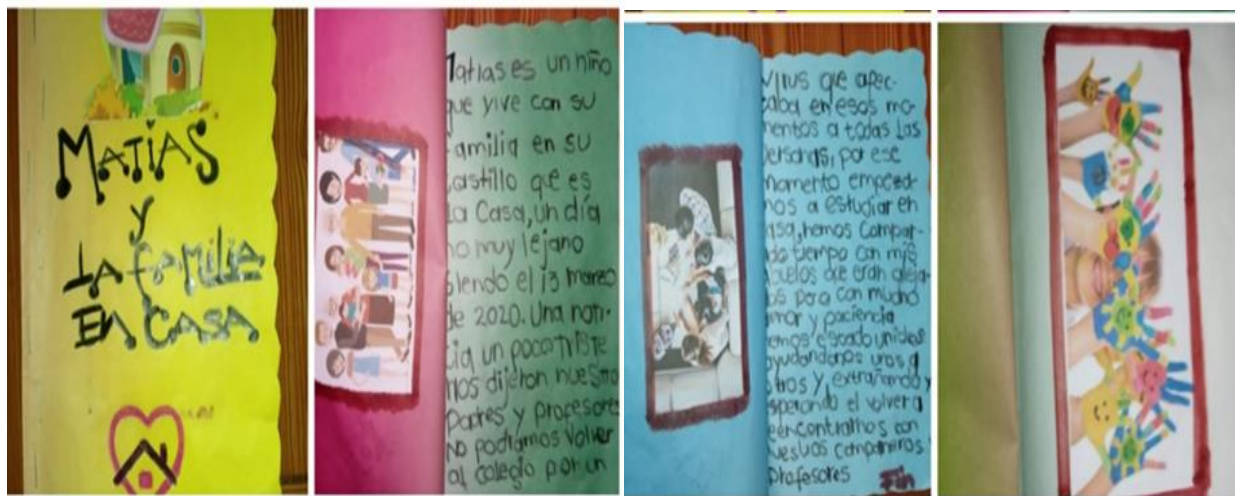 MATIAS
Y
LA FAMILIA
EN CASA
Matias es un niño
que vive con su
familia en su
castillo que es
la Casa, un día
no muy lejano
siendo el 13 marzo
de 2020. Una noti-
cia un poco triste
nos dijeron nuestro
padres y profesores
NO podiamos volver
al colegio por un
virus que afec-
taba en esos mo-
mentos a todas las
personas, por ese
momento empeza-
mos a estudiar en
casa, hemos compar-
tido tiempo con mis
abuelos que eran
pero con mucho
amor y paciencia
hemos estado unidos
ayudandonos unos a
otros y, extrañando y
esperando el volver a
encontrarnos con
compañeros
profesores Fin